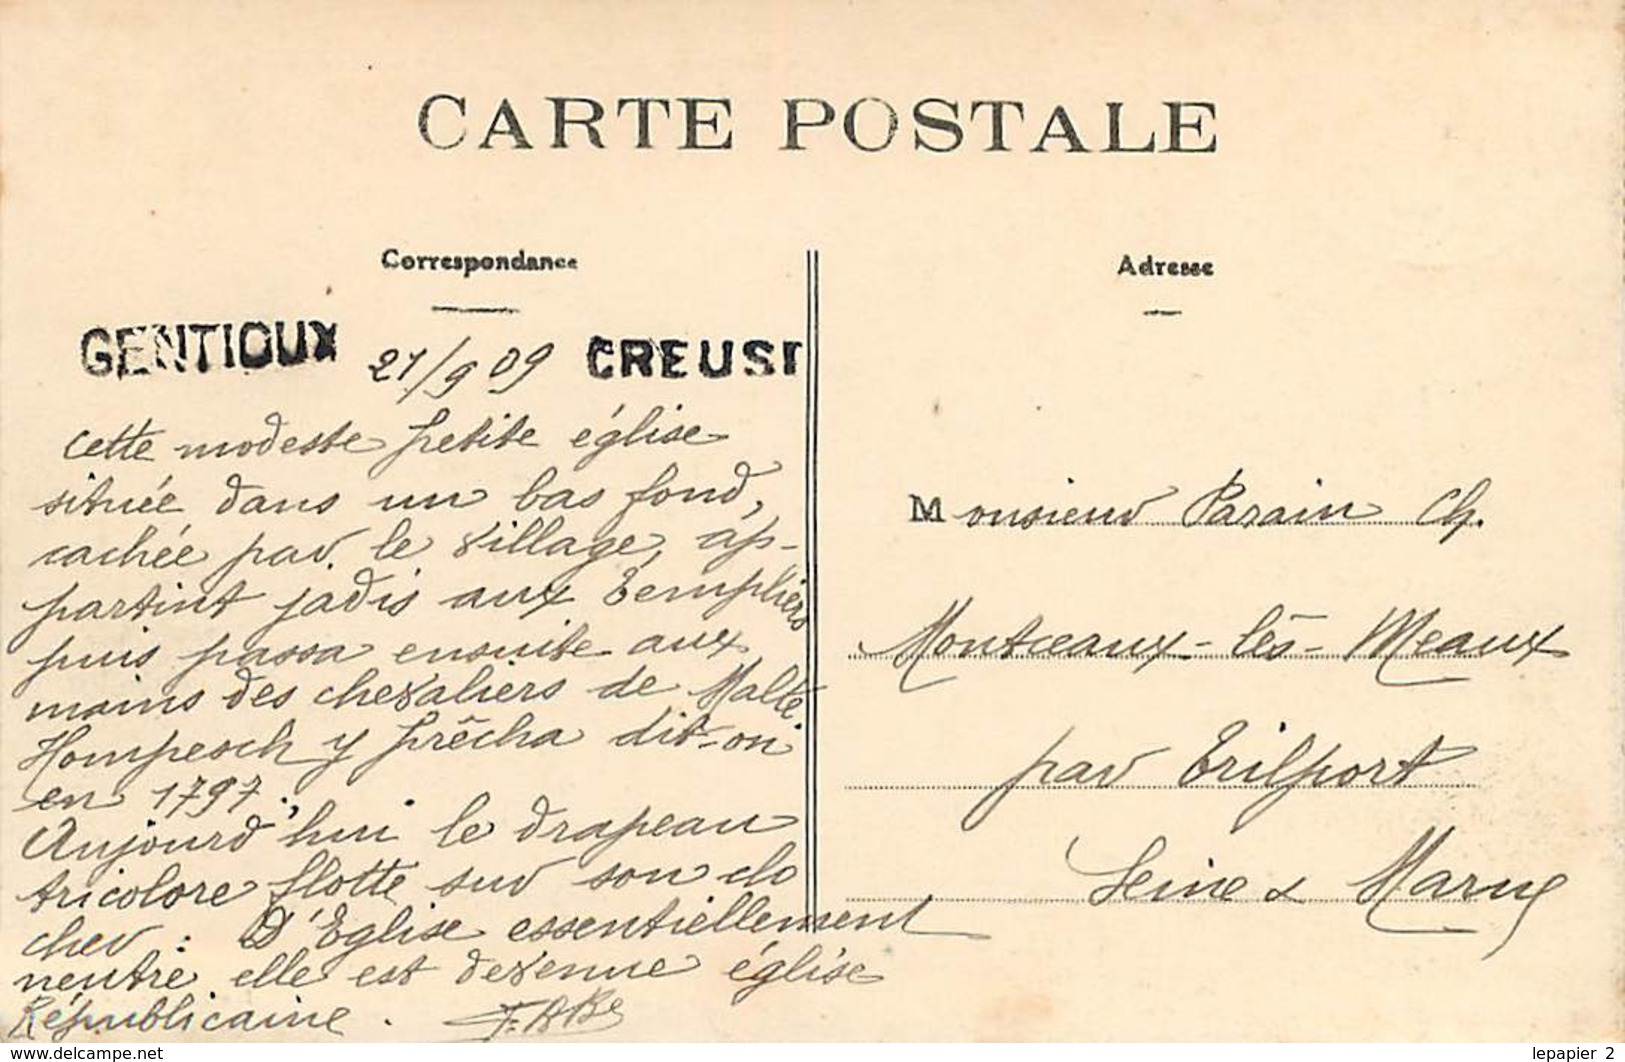 CARTE POSTALE
Correspondance
Adresse
GENTIOUX 21/9 09 CREUSE
Cette modeste petite église
située dans un bas fond,
cachée par le village, ap-
partint jadis aux Templiers
puis passa ensuite aux
mains des chevaliers de Malte.
Hompesch y prêcha dit-on
en 1797.
Aujourd'hui le drapeau
tricolore flotte sur son clo
cher : D'Eglise essentiellement
neutre elle est devenue église
Républicaine.
Monsieur Parain Ch.
Montceaux-lès-Meaux
par Trilport
Seine & Marne
www.delcampe.net
lepapier 2